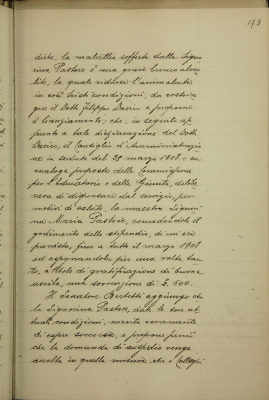 193
dice, la malattia sofferta dalla Signo-
rina Pastore è una grave bronco alveo-
lite, la quale ridusse l'ammalata
in così tristi condizioni, da costrin-
gere il Dott. Filippo Daviso a proporne
il licenziamento; che, in seguito ap-
punto a tale dichiarazione del Dott.
Daviso, il Consiglio d'Amministrazio-
ne in seduta del 28 marzo 1908 e su
analoga proposta della Commissione
per l'educatorio e della Giunta, delibe-
rava di dispensare dal servizio, per
motivi di salute, la maestra Signori-
na Maria Pastore, concedendole il
godimento dello stipendio, di cui era
provvista, fino a tutto il marzo 1908
ed assegnandole per una volta tan-
to, a titolo di gratificazione di buona
uscita, una sovvenzione di L. 500.
Il Senatore Bertetti aggiunge che
la Signorina Pastore, date le sue at-
tuali condizioni, merita veramente
di essere soccorsa, e propone perciò
che la domanda di sussidio venga
accolta in quella misura che i Colleghi